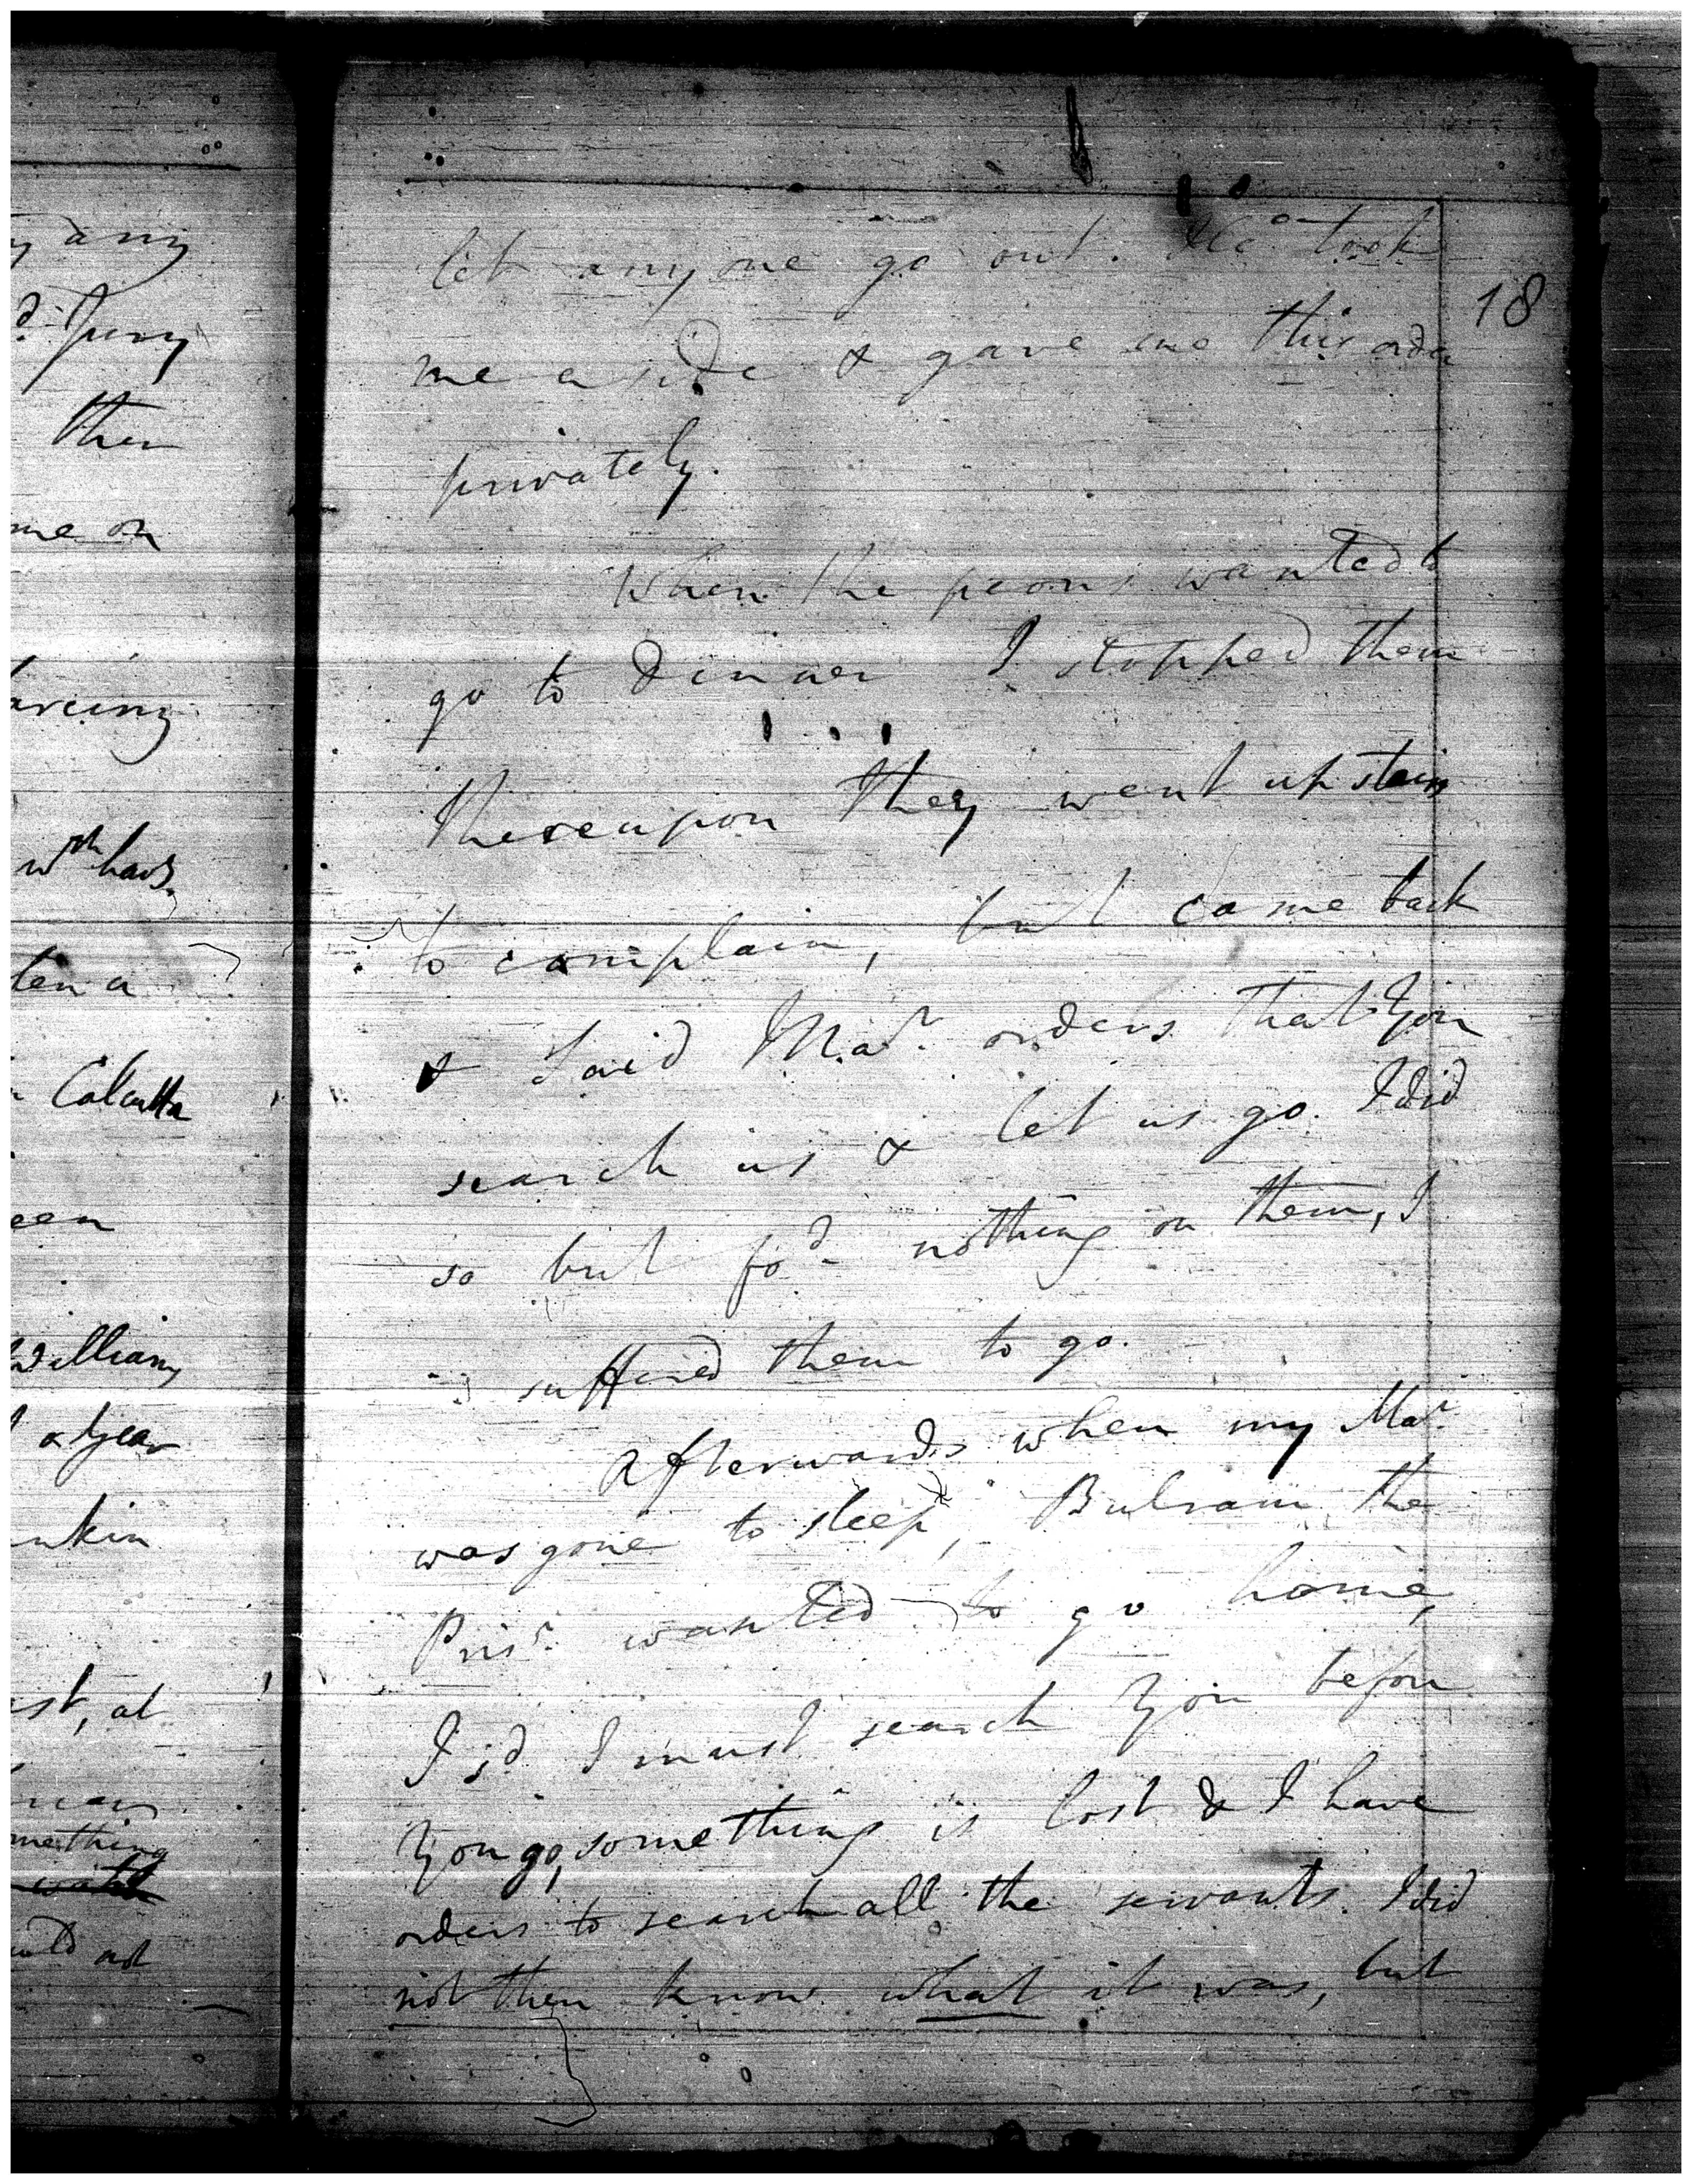 y any
d. Jury
then
me on
arcing
wth havs.
ten a
Calcutta
een
William,
a Year
nkin
st, at
mething
watch
uld not
18
let any one go out. He took
me aside & gave me this order
privately.
When the peons wanted to
go to dinner I stopped them
thereupon they went up stairs
to complain, but came back
& said Mar. orders that you
search us & let us go. I did
so but fod. nothing on them, I
suffered them to go.
Afterwards when my Mar.
was gone to sleep, Bulram the
Prisr. wanted to go home,
I sd. I must search you before
you go, something is lost & I have
orders to search all the servants. I did
not then know what it was, but